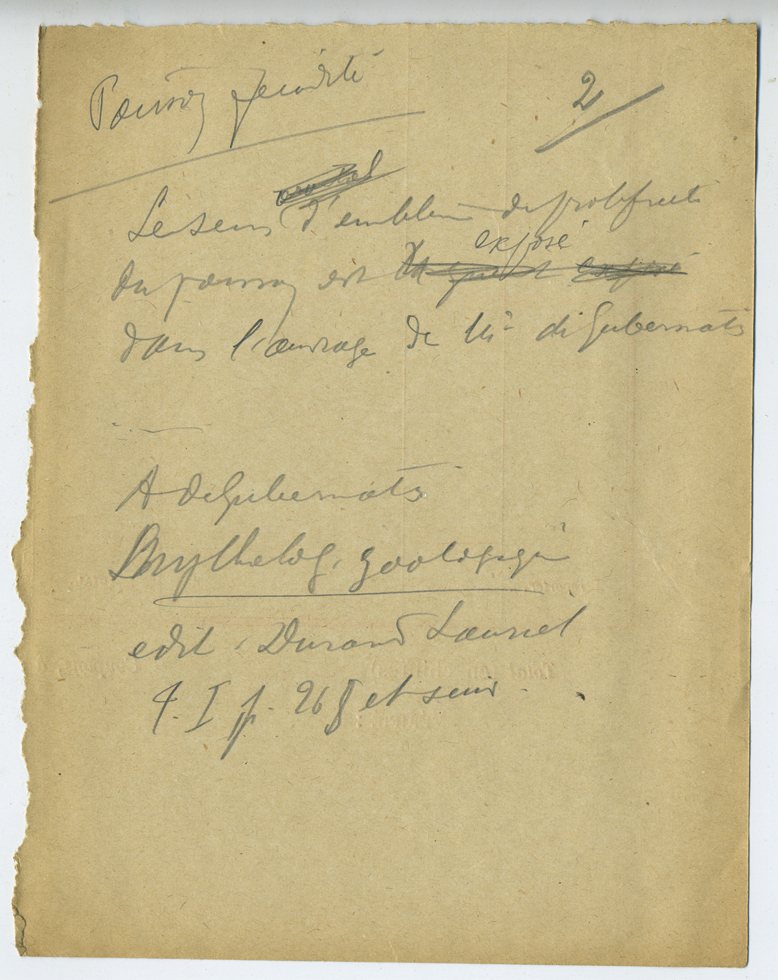 Poisson fécondité
2
Le sens d'emblème de prolificité
du poisson est exposé
dans l'ouvrage de Mr di Gubernatis
A de Gubernatis
Mytholog. zoologique
edit. Durand Lauriel
t. I p. 268 et suiv.